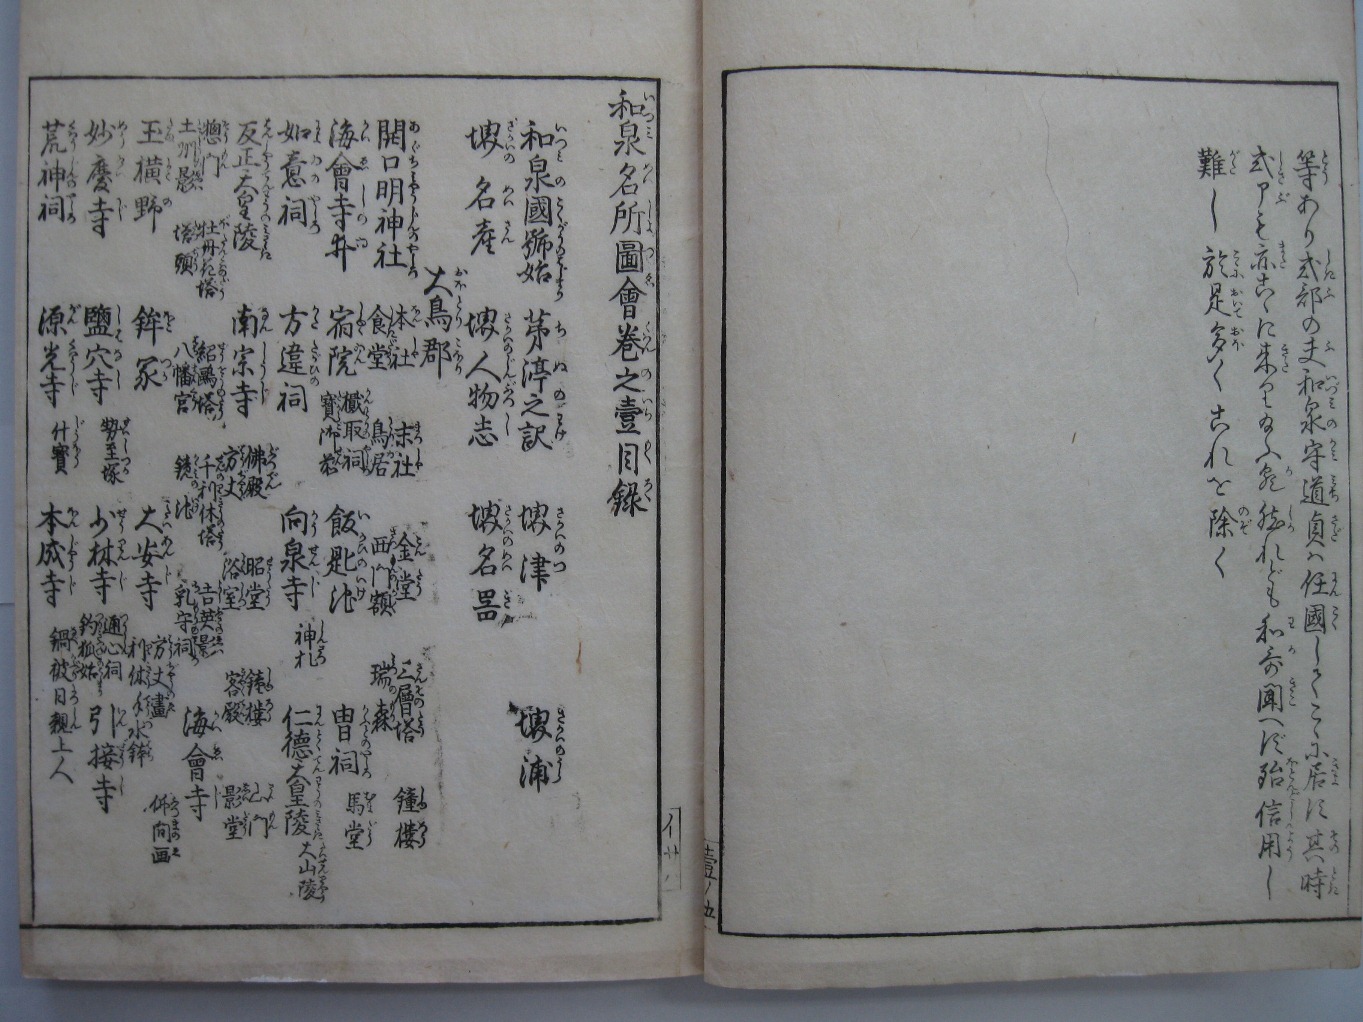 等あり式部の夫和泉守道貞ハ任國してこゝに居ず其時
式アも亦こゝに来りしか然れども和哥聞へず殆信用し
難し於是多くこれを除く
和泉名所圖會巻之壹目録
和泉國號始 茅渟之訳 堺津 堺浦
堺名産 堺人物志 堺名器
大鳥郡
開口明神社 本社 末社 金堂 三層塔 鐘樓
食堂 鳥居 西門額 瑞森
海會寺井 宿院 櫼取祠 寶 飯匙池 冑祠 馬堂
如意祠 方違祠 向泉寺 神札 仁德天皇陵 大山陵
反正天皇陵 南宗寺 佛殿 昭堂 鐘樓
方丈 浴室 客殿 影堂
惣門 牡丹花塔 紹鷗塔 千利休塔 吉英影 海會寺
土州影 塔頭 八幡宮 鏡池 乳守祠 方丈畫
玉横野 鉾冢 大安寺 利休手水鉢
妙慶寺 鹽穴寺 勢至塚 少林寺 通心祠 釣狐始 引接寺
荒神祠 源光寺 什寶 本成寺 鍋被日親上人
壹ノ五